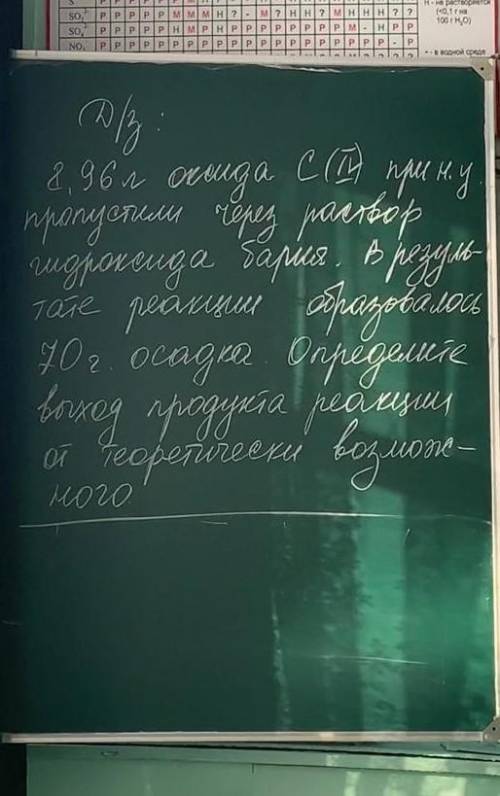 SO₃ Р Р Р Р Р М М М Н ? - М ? Н Н ? М Н Н Н ? ?
SO₄
NO₃
Н - не растворяется
(<0,1 г на
100 г H₂O)
- в водной среде
Д/з:
8,96 л оксида С(IV) при н.у
пропустили через раствор
гидроксида бария. В резуль-
тате реакции образовалось
70 г. осадка. Определите
выход продукта реакции
от теоретически возмож-
ного